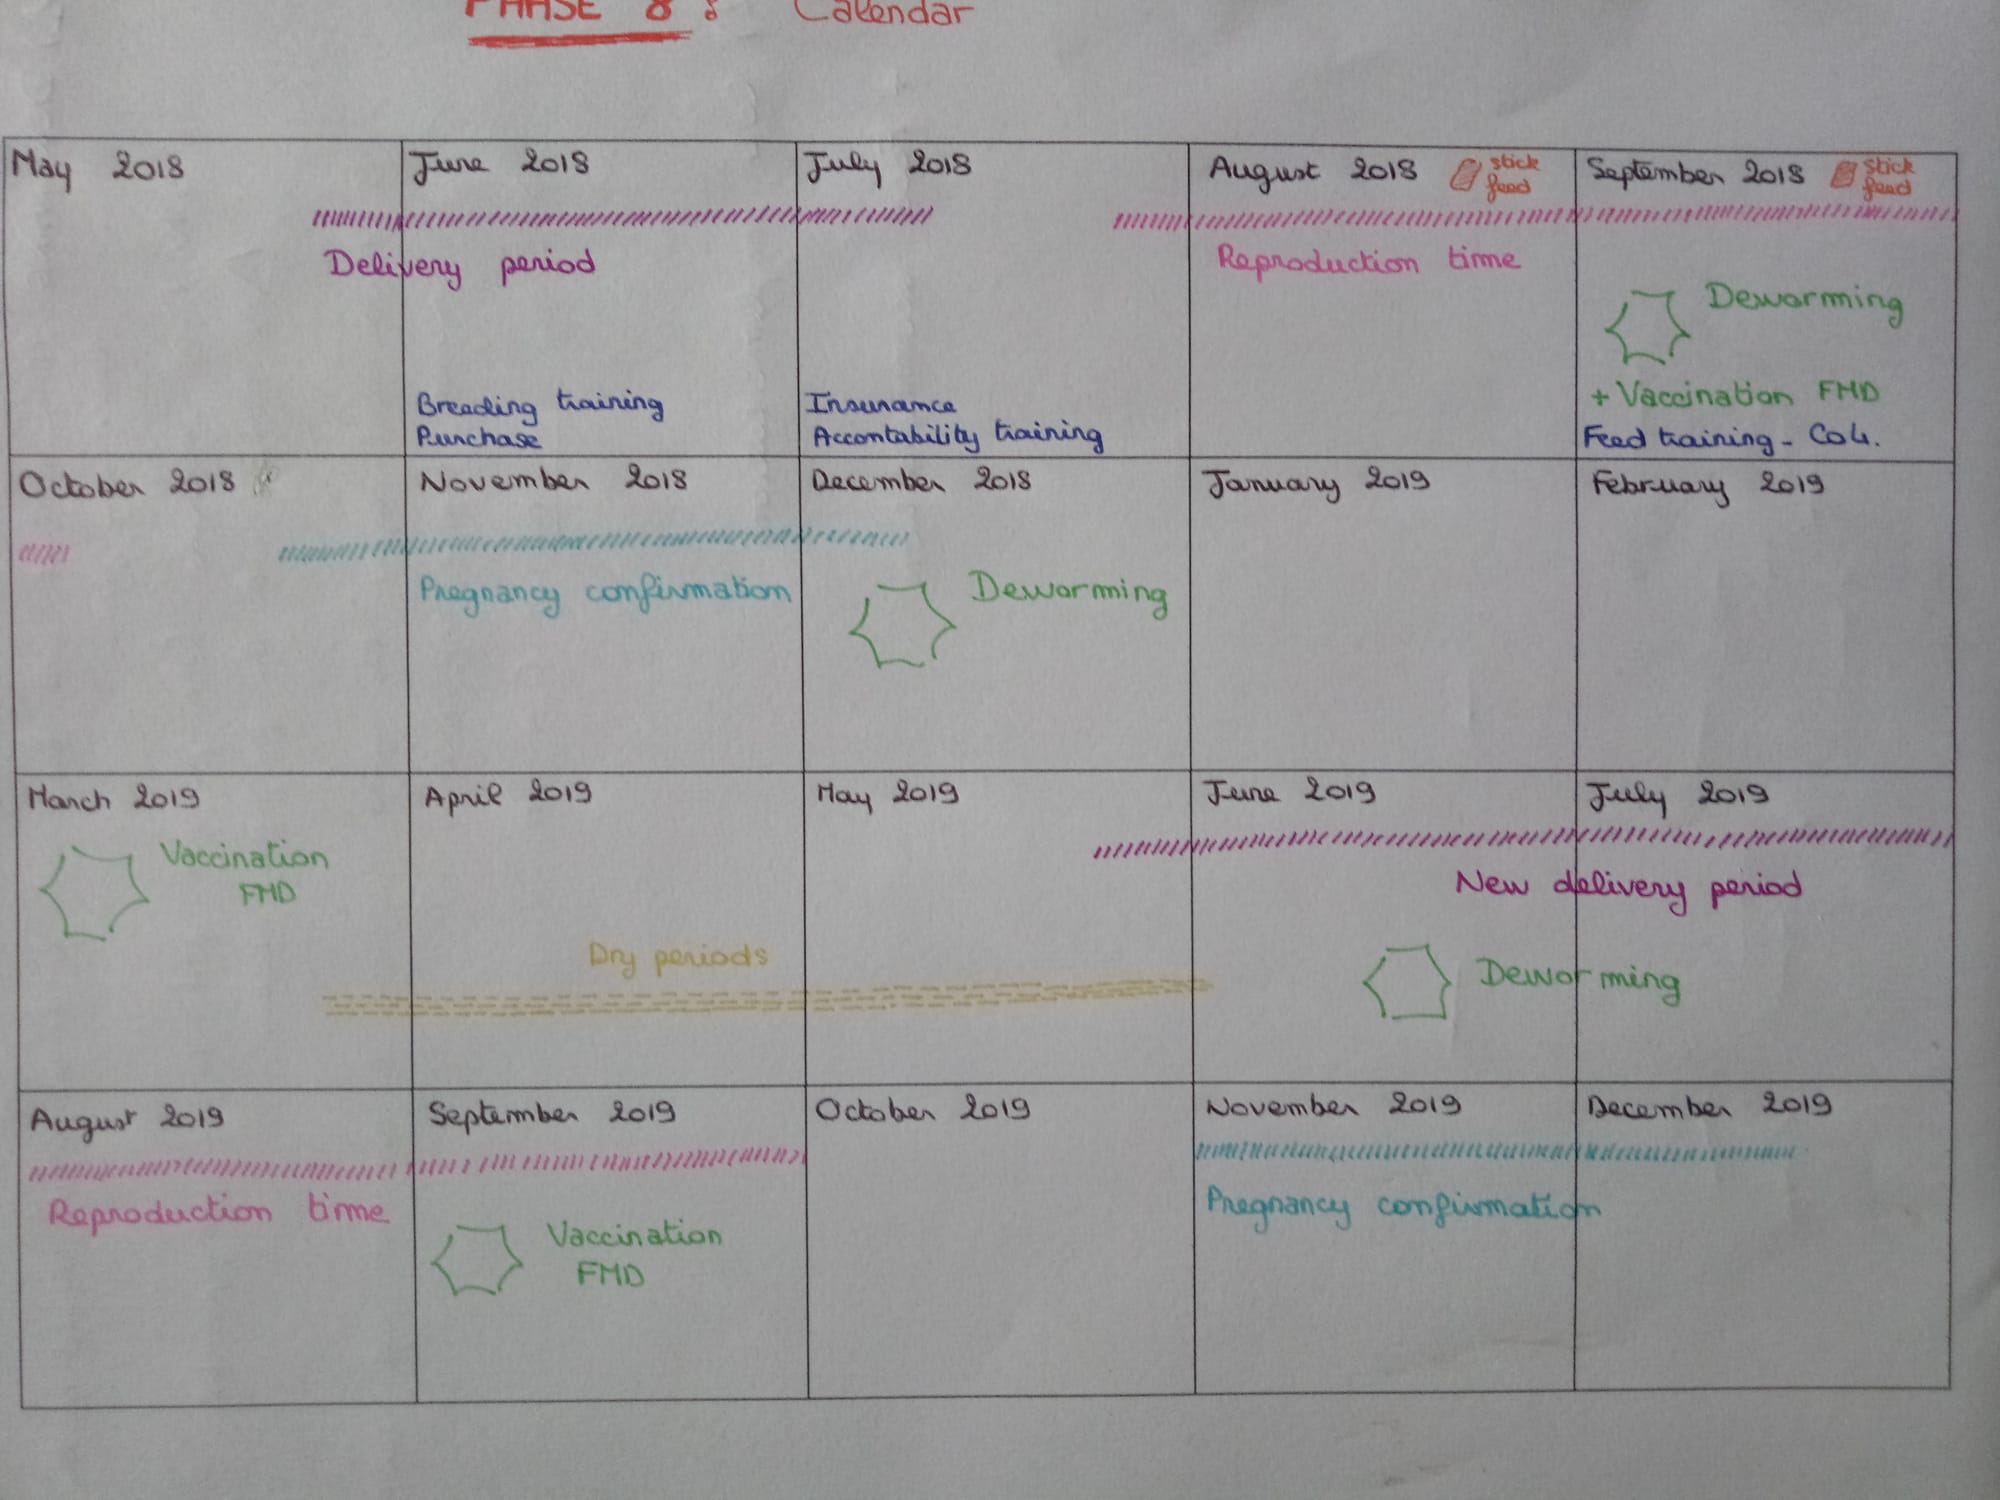 PHASE 8 : Calendar
May 2018
June 2018
July 2018
August 2018
stick
feed
September 2018
stick
feed
Delivery period
Reproduction time
Deworming
+ Vaccination FMD
Breeding training
Purchase
Insurance
Accontability training
Feed training -
October 2018
November 2018
December 2018
January 2019
February 2019
Pregnancy confirmation
Deworming
March 2019
April 2019
May 2019
June 2019
July 2019
Vaccination
FMD
New delivery period
Dry periods
Deworming
August 2019
September 2019
October 2019
November 2019
December 2019
Reproduction time
Pregnancy confirmation
Vaccination
FMD